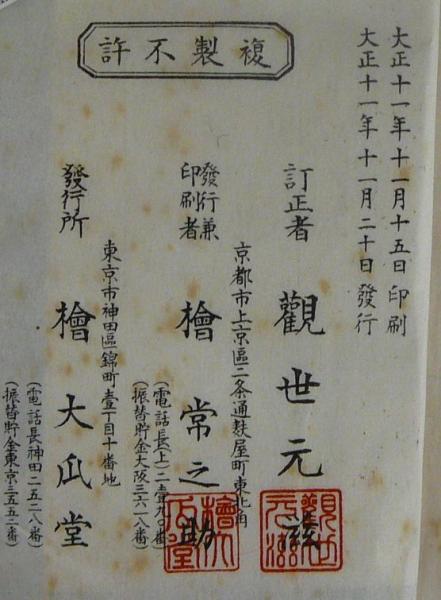 複製不許
大正十一年十一月十五日印刷
大正十一年十一月二十日發行
訂正者 觀世元滋
京都市上京區二条通麸屋町東北角
發行兼印刷者 檜常之助
(電話長(上)二壹九〇番
(振替貯金大阪三六一八番
東京市神田區錦町壹丁目十番地
發行所 檜大瓜堂
(電話長神田二五二八番)
(振替貯金東京三五五二番)
觀世元滋
檜大瓜堂